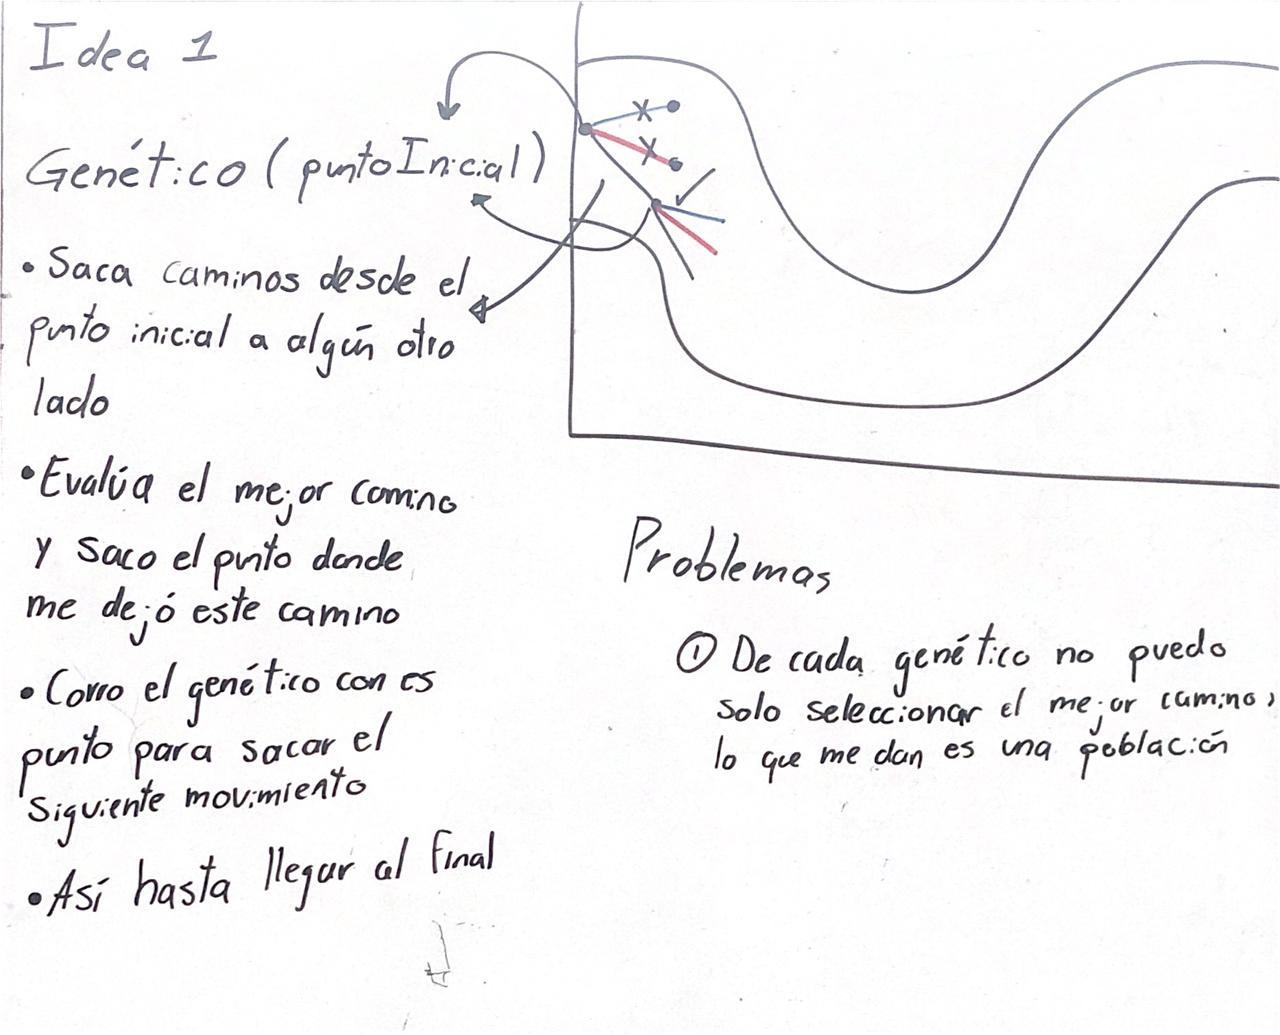 Idea 1
Genético (puntoInicial)
• Saca caminos desde el
punto inicial a algún otro
lado
• Evalúa el mejor camino
y saco el punto donde
me dejó este camino
• Corro el genético con es
punto para sacar el
siguiente movimiento
• Así hasta llegar al final
Problemas
① De cada genético no puedo
solo seleccionar el mejor camino,
lo que me dan es una población